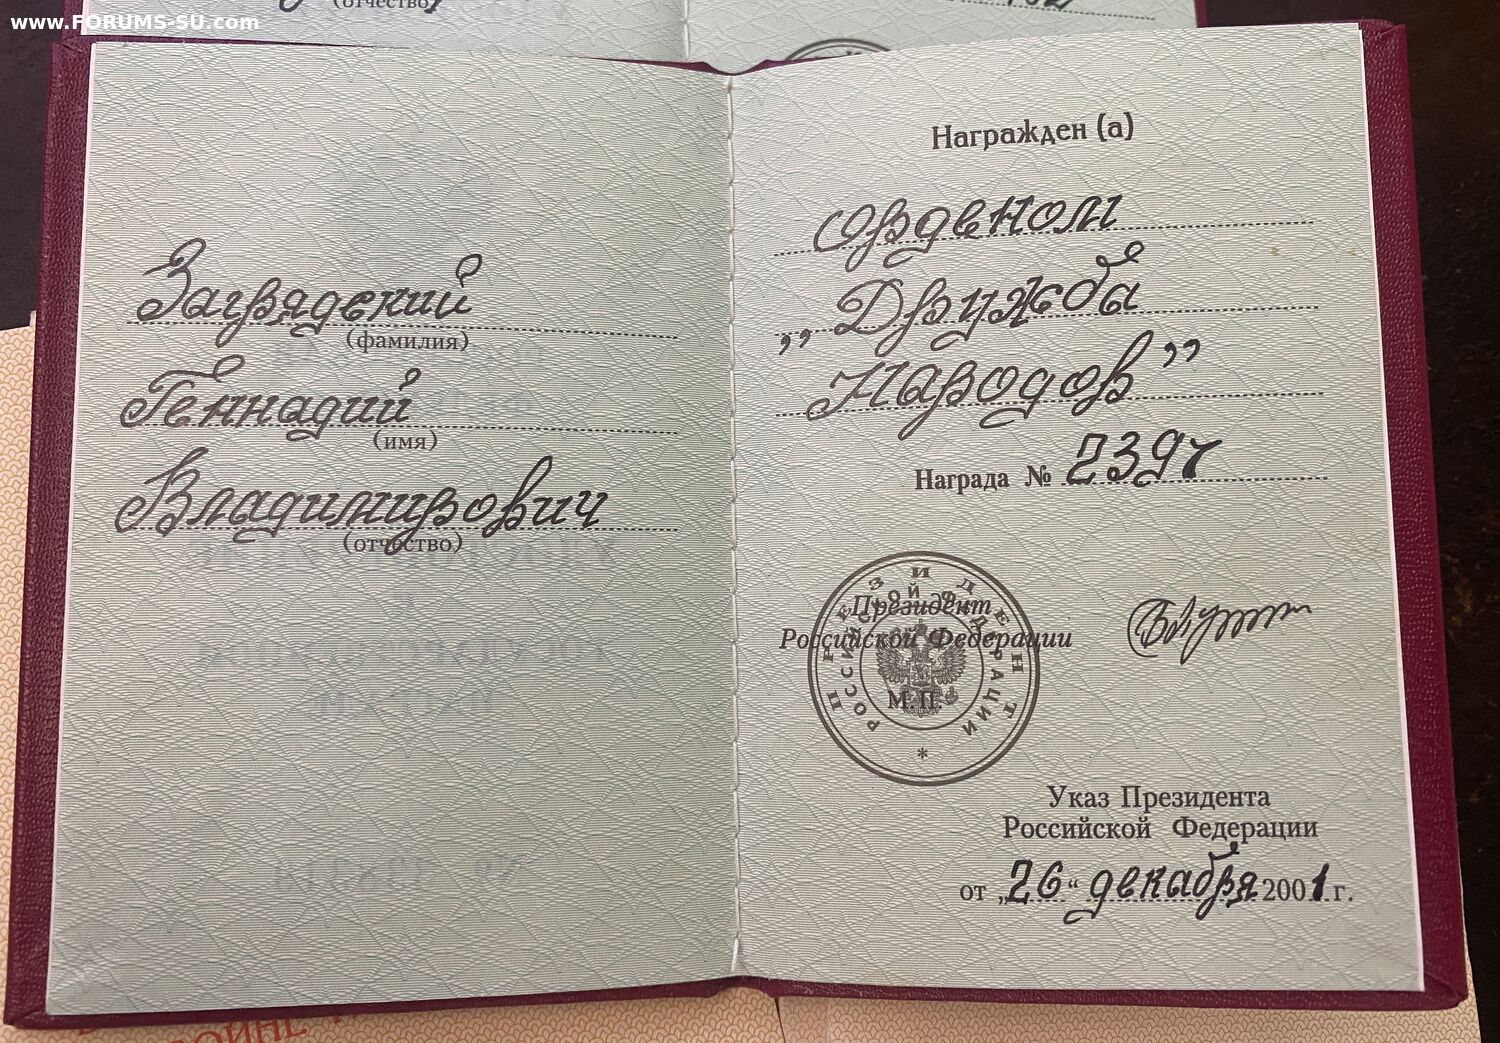 www.FORUMS-SU.com
(отчество)
Загрядский
(фамилия)
Геннадий
(имя)
Владимирович
(отчество)
Награжден (а)
орденом
„Дружба
Народов”
Награда № 2397
ПРЕЗИДЕНТ
РОССИЙСКОЙ ФЕДЕРАЦИИ
Президент
Российской Федерации
М.П.
Указ Президента
Российской Федерации
от „26“ декабря 2001 г.